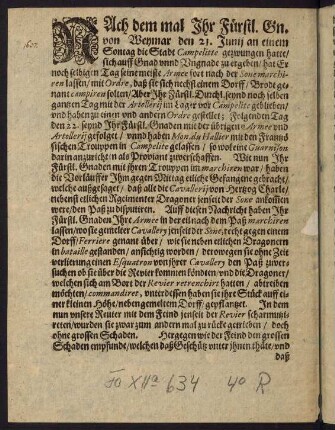 1637.
NAch dem mal Ihr Fürstl. Gn.
von Weymar den 21. Junij an einem
Sontag die Stadt Campelitte gezwungen hatte/
sich auff Gnad vnnd Vngnade zu ergeben/ hat Er
noch selbigen Tag seine meiste Armee fort nach der Sone marchi-
ren lassen/ mit Ordre, daß sie sich nechst einem Dorff/ Brode gena-
nant campiren solten/ Aber Ihr Fürstl. Durchl. seynd noch selben
gantzen Tag mit der Artollerij im Läger vor Campelite geblieben/
und haben zu einen und andern Ordre gestellet; Folgenden Tag
den 22. seynd Ihr Fürstl. Gnaden mit der übrigen Armee vnd
Artollerij gefolget/ vnnd haben Mons. du Hallier mit den Frantzö-
sischen Trouppen in Campelite gelassen/ so wol eine Guarnison
darin anzurichten/ als Proviant zu verschaffen. Wie nun Ihr
Fürstl. Gnaden mit ihren Trouppen im marchiren war/ haben
die Vorläuffer Ihm gegen Mittag etliche Gefangene gebracht/
welche außgesaget/ daß alle die Cavallerij von Hertzog Charle,
nebenst etlichen Regimenter Dragoner jenseit der Sone ankossen
were/ den Paß zu disputiren. Auff diesen Nachricht haben Ihr
Fürstl. Gnaden Ihre Armee in Battaille nach dem Paß marchiren
lassen/ wo sie gemelter Cavallery jenseit der Sone, recht gegen einem
Dorff/ Ferriere genant über/ wie sie neben etlichen Dragonern
in bataille gestanden/ ansichtig worden/ derowegen sie ohne Zeit
verlierung einen Esquatron von ihrer Cavallery den Paß zu ver-
suchen ob sie über die Revier kommen köndten/ und die Dragoner/
welchen sich am Bort der Revier retrenchirt hatten/ abtreiben
möchten/ commandiret, unterdessen haben sie ihre Stück auff ei-
ner kleinen Höhe/ neben gemeltem Dorff/ gepflantzet. In dem
nun vnsere Reuter mit dem Feind jenseit der Revier scharmuzi-
reten/ wurden sie zwar zum andern mal zu rücke getrieben/ doch
ohne grossen Schaden. Hergegen wie der Feind den grossen
Schaden empfunde/ welchen daß Geschütz unter ihnen thäte/ und
daß
Fa XIIa 634 4° R